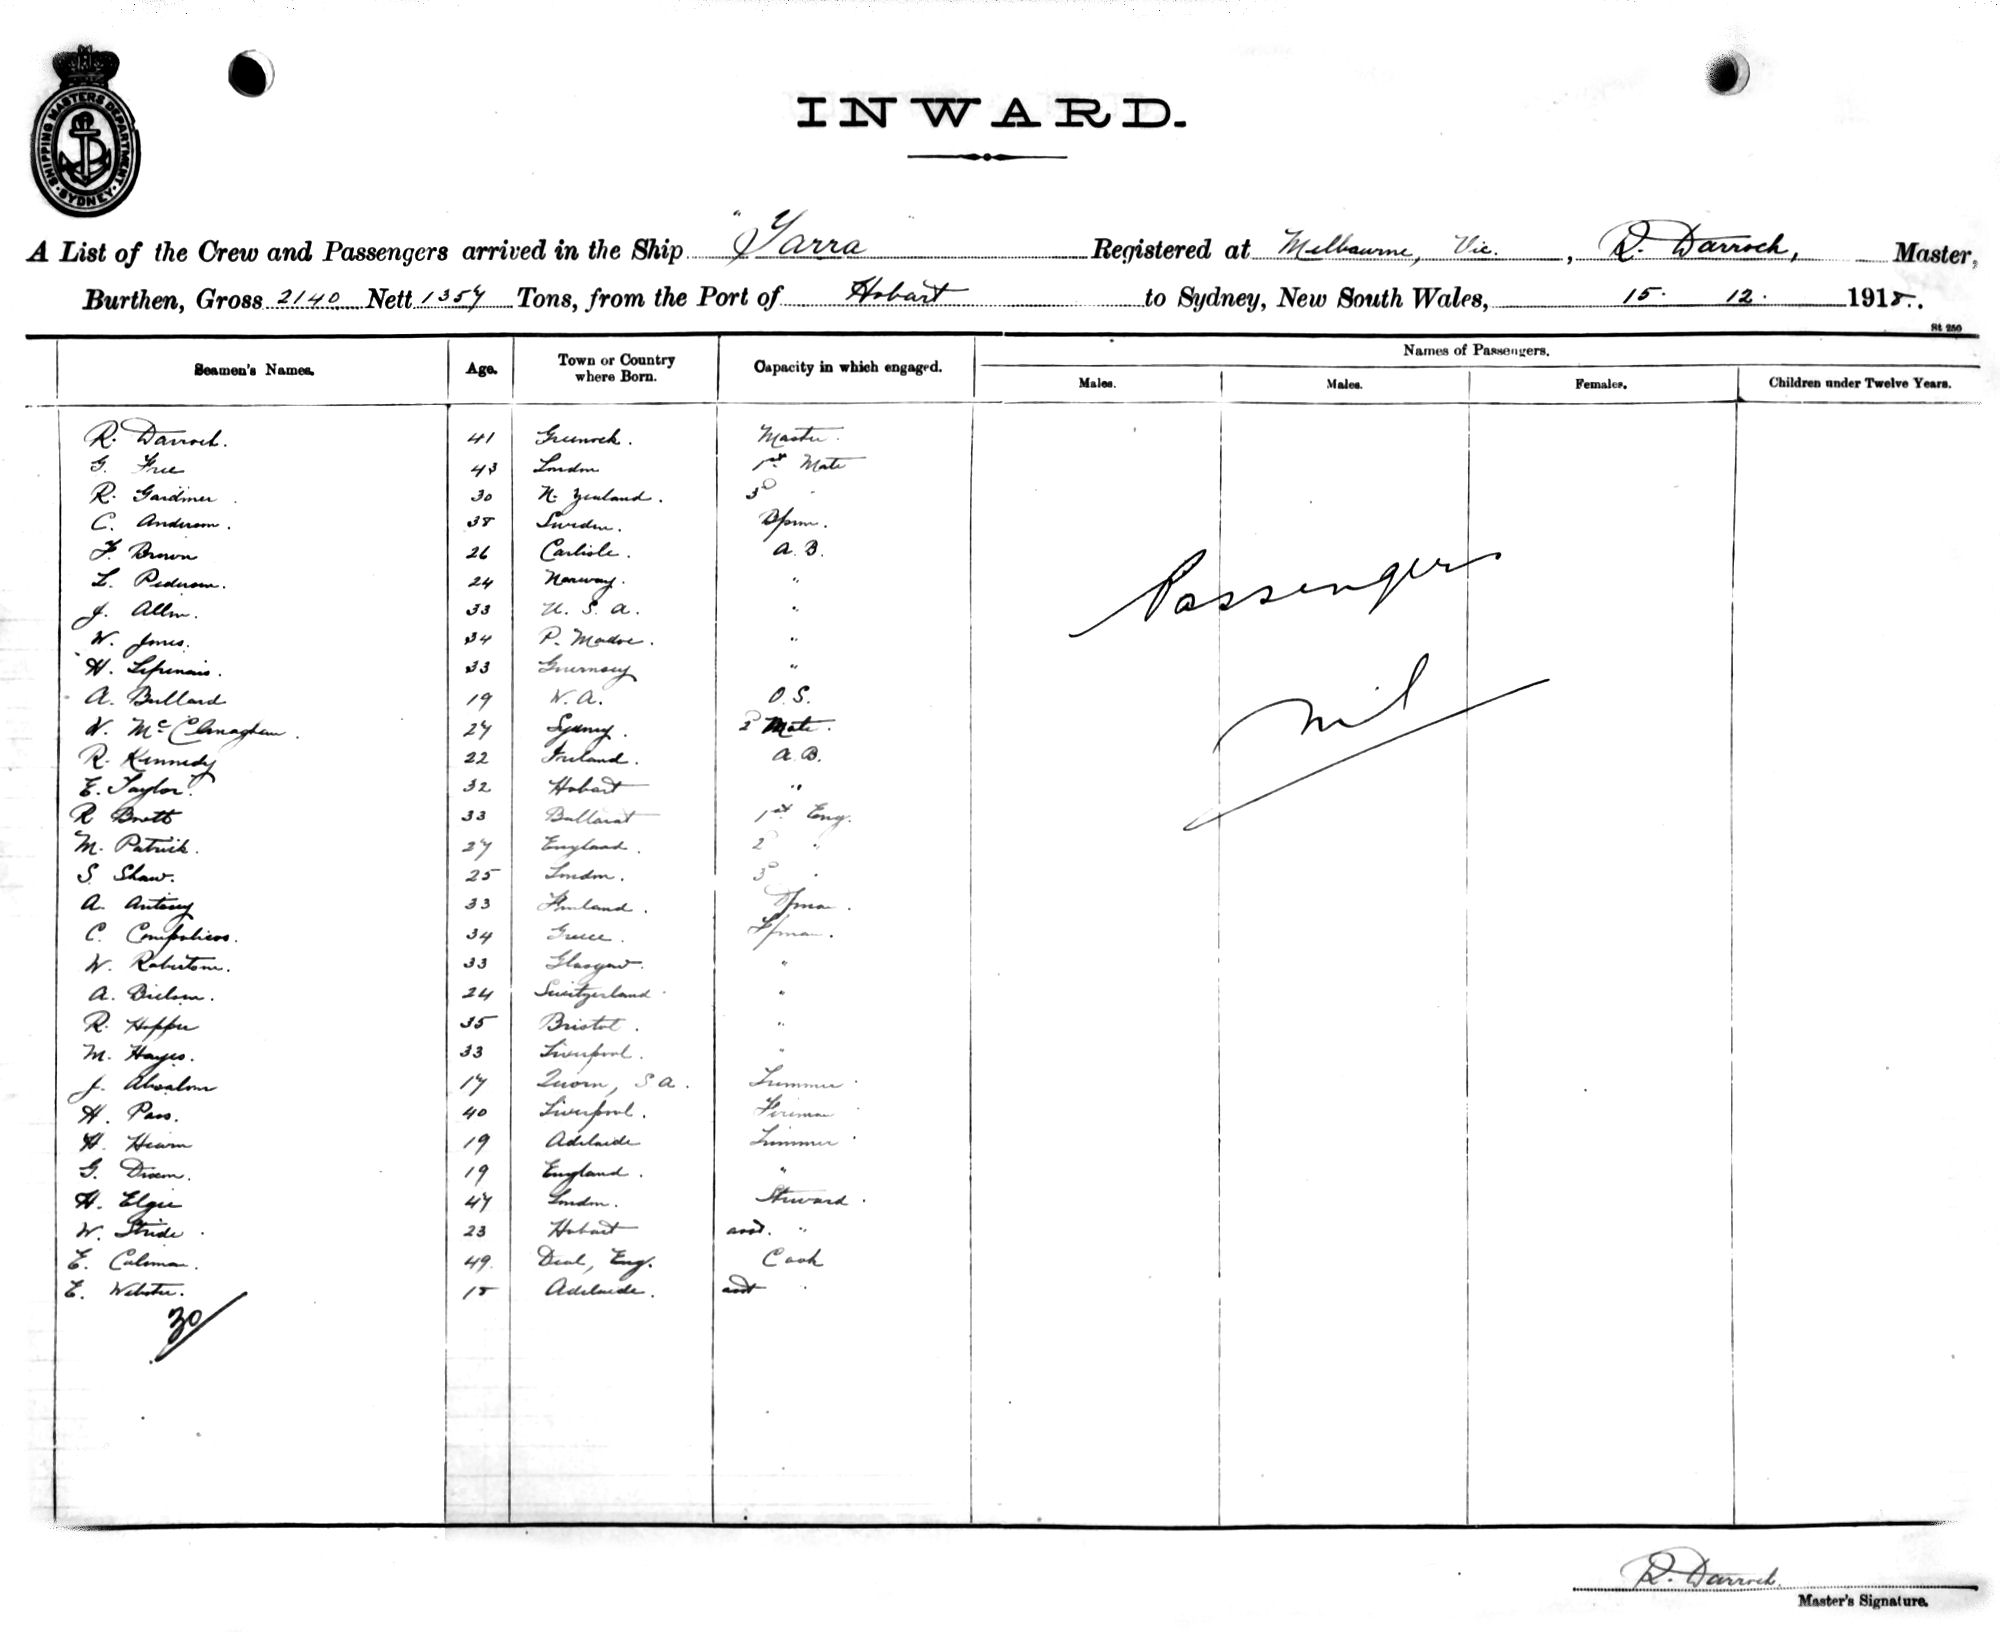 SHIPPING MASTERS DEPARTMENT
SYDNEY
INWARD.
A List of the Crew and Passengers arrived in the Ship "Yarra" Registered at Melbourne, Vic. , R. Darroch, Master,
Burthen, Gross 2140 Nett 1357 Tons, from the Port of Hobart to Sydney, New South Wales, 15. 12. 1918.
St 250
Seamen's Names. Age. Town or Country where Born. Capacity in which engaged. Names of Passengers.
Males. Males. Females. Children under Twelve Years.
R. Darroch. 41 Greenock. Master.
G. Free 43 London 1st Mate
R. Gardiner 30 N. Zealand. 3D "
C. Anderson. 38 Sweden. Bsun.
F. Brown 26 Carlisle. A.B.
L. Pederson. 24 Norway. "
J. Allen. 33 U.S.A. "
W. Jones. 34 P. Madoc. "
H. 33 Guernsey "
A. Bullard 19 W.A. O.S.
W. McClenaghan. 27 Sydney. 2D Mate.
R. Kennedy 22 Ireland. A.B.
E. Taylor. 32 Hobart "
R Brett 33 Ballarat 1st Eng.
M. Patrick. 27 England. 2D "
S. Shaw. 25 London. 3D "
A. Antony 33 Finland.
C. 34 Greece.
W. Robertson. 33 Glasgow. "
A. 24 Switzerland "
R. Hopper 35 Bristol. "
M. Hayes. 33 Liverpool. "
J. Absalom 17 Quorn, S.A. Trimmer
H. Pass. 40 Liverpool. Fireman
H. Hearn 19 Adelaide Trimmer
G. Dixon. 19 England. "
H. Elgie 47 London. Steward.
W. Stride 23 Hobart asst. "
E. Coleman. 49. Deal, Eng. Cook
E. Webster. 18 Adelaide. asst "
30/
Passengers
nil
R. Darroch.
Master's Signature.